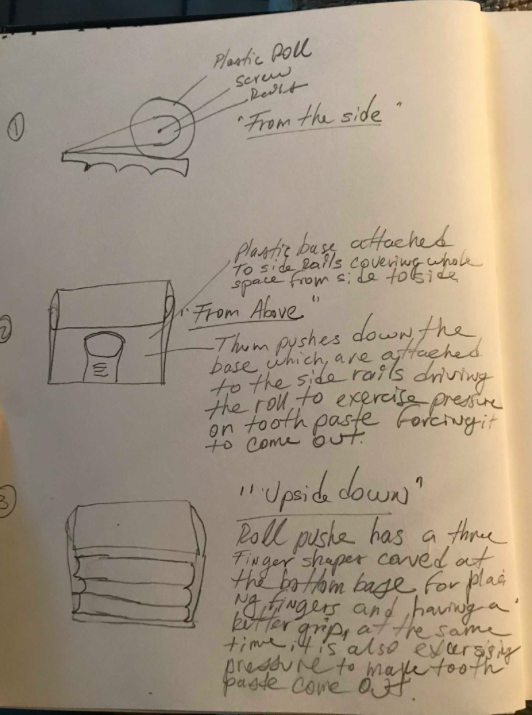 Plastic Roll
screw
①
"From the side"
Plastic base attached
To side rails covering whole
space from side to side
②
"From Above"
Thum pushes down the
base which are attached
to the side rails driving
the roll to exercise pressure
on tooth paste Forcing it
to come out.
3
"Upside down"
Roll pushe has a three
Finger shaper carved at
the bottom base for plac
ng fingers and having a
better grip, at the same
time, it is also exersisig
pressure to make tooth
paste come out.